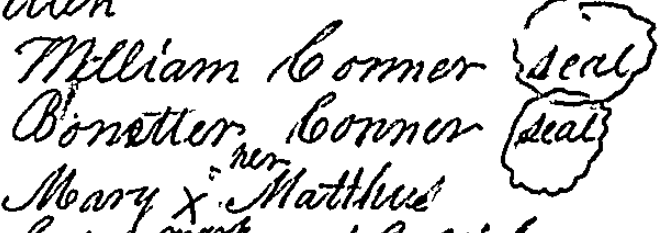 William Conner seal
Bonetter Conner seal
her
Mary X Matthus
mark